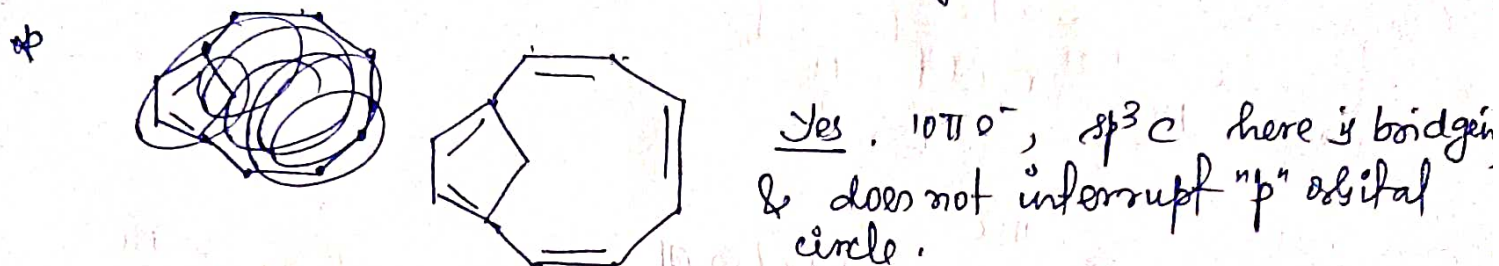 Yes. 10π e⁻, sp³ C here is bridgein
& does not interrupt "p" orbital
circle.